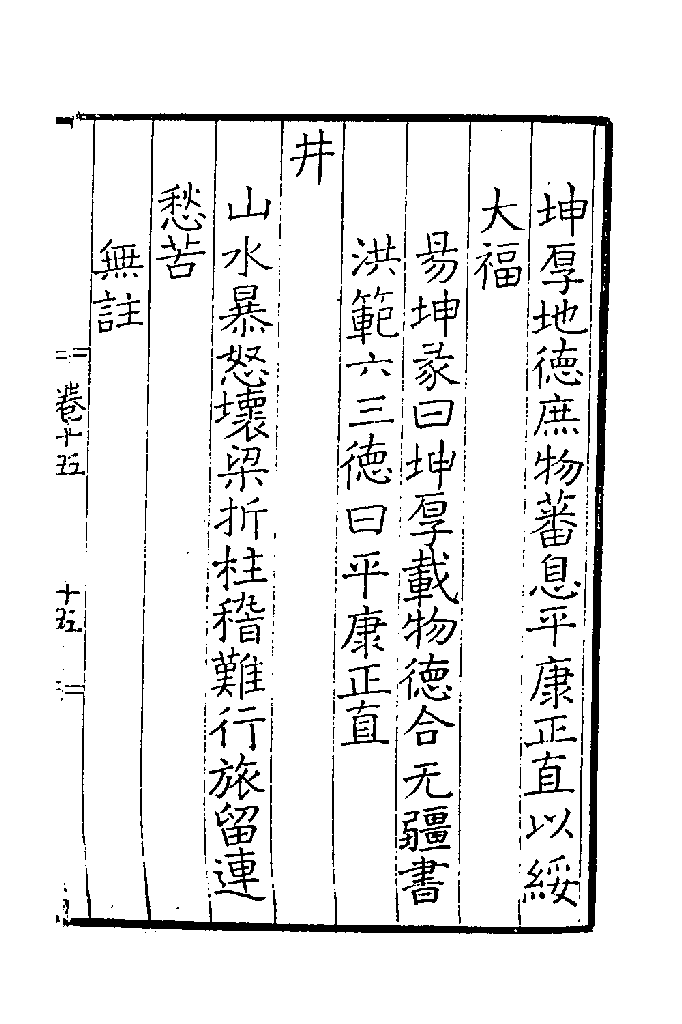 坤厚地德庶物蕃息平康正直以綏
大福
易坤彖曰坤厚載物德合无疆書
洪範六三德曰平康正直
井
山水暴怒壞梁折柱稽難行旅留連
愁苦
無註
卷十五
十五